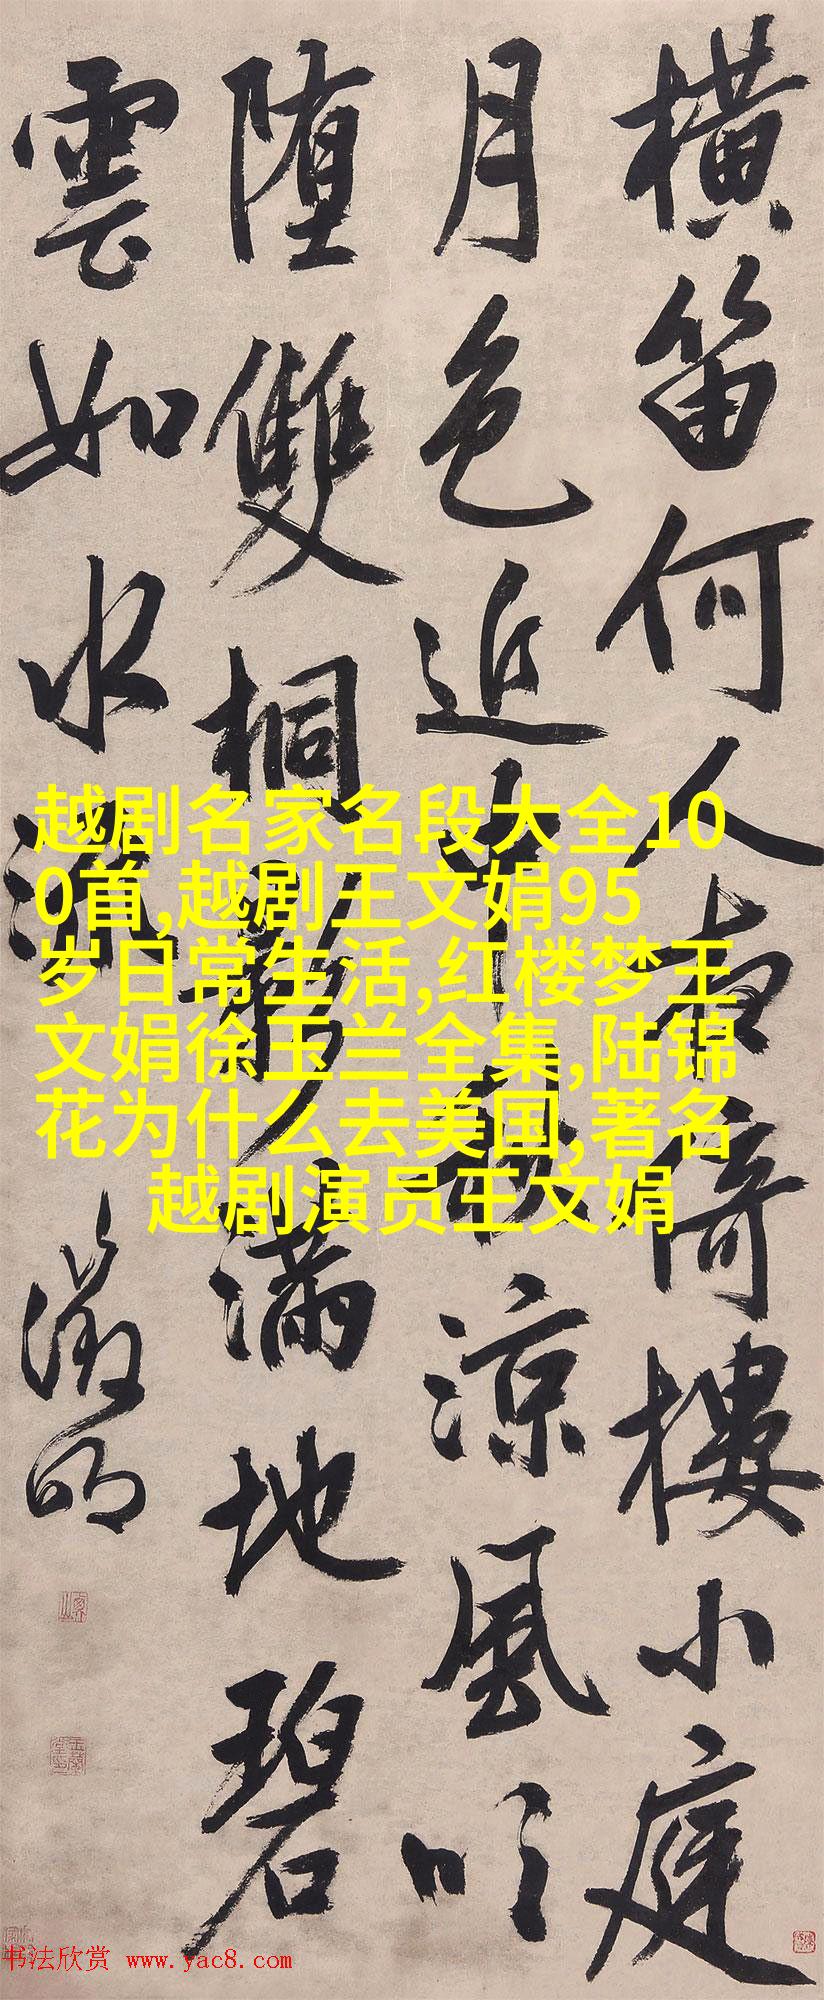 橫笛何人夜倚樓小庭
月色近中秋涼風吹
堕雙桐影滿地碧
雲如水流
徵明
越剧名家名段大全10
0首,越剧王文娟95
岁日常生活,红楼梦王
文娟徐玉兰全集,陆锦
花为什么去美国,著名
越剧演员王文娟
书法欣赏 www.yac8.com